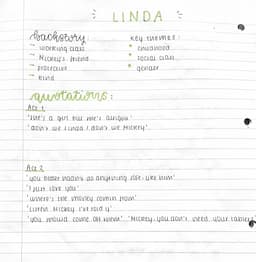 LINDA
backstory:
key themes:
working class
childhood
Mickey's friend
social class
protective
gender
kind
quotations:
Act 1
'she's a girl but she's alright'
'don't we Linda, don't we Mickey'
Act 2
'you better hadn't do anything soft, like him'
'I just love you'
'where's the money comin from'
'Listen, Mickey I've told y'
'you would come off them' 'Mickey, you don't need your tablets'